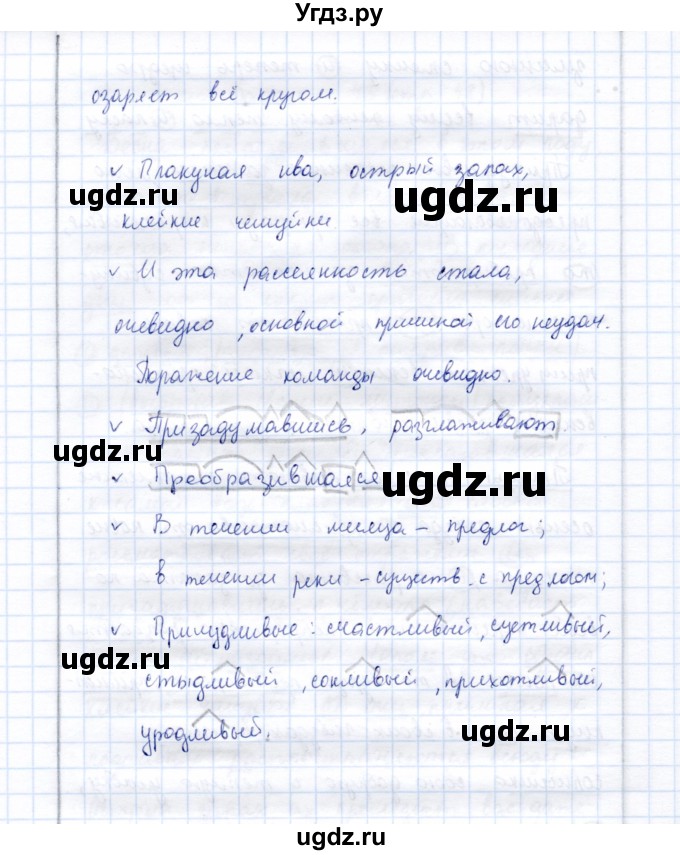 Угдз.ру
озаряет всё кругом.
✓ Плакучая ива, острый запах,
ugdz.ru
ugdz.ru
клейкие чешуйки
✓ И эта рассеянность стала,
очевидно, основной причиной его неудач.
Поражение команды очевидно.
✓ Призадумавшись, разглаживают
ugdz.ru
✓ Преобразившаяся
ugdz.ru
✓ В течении месяца – предлог;
в течении реки – существ. с предлогом;
✓ Причудливые: счастливый, суетливый,
ugdz.ru
стыдливый, сонливый, прихотливый,
уродливый.
ugdz.ru
ugdz.ru